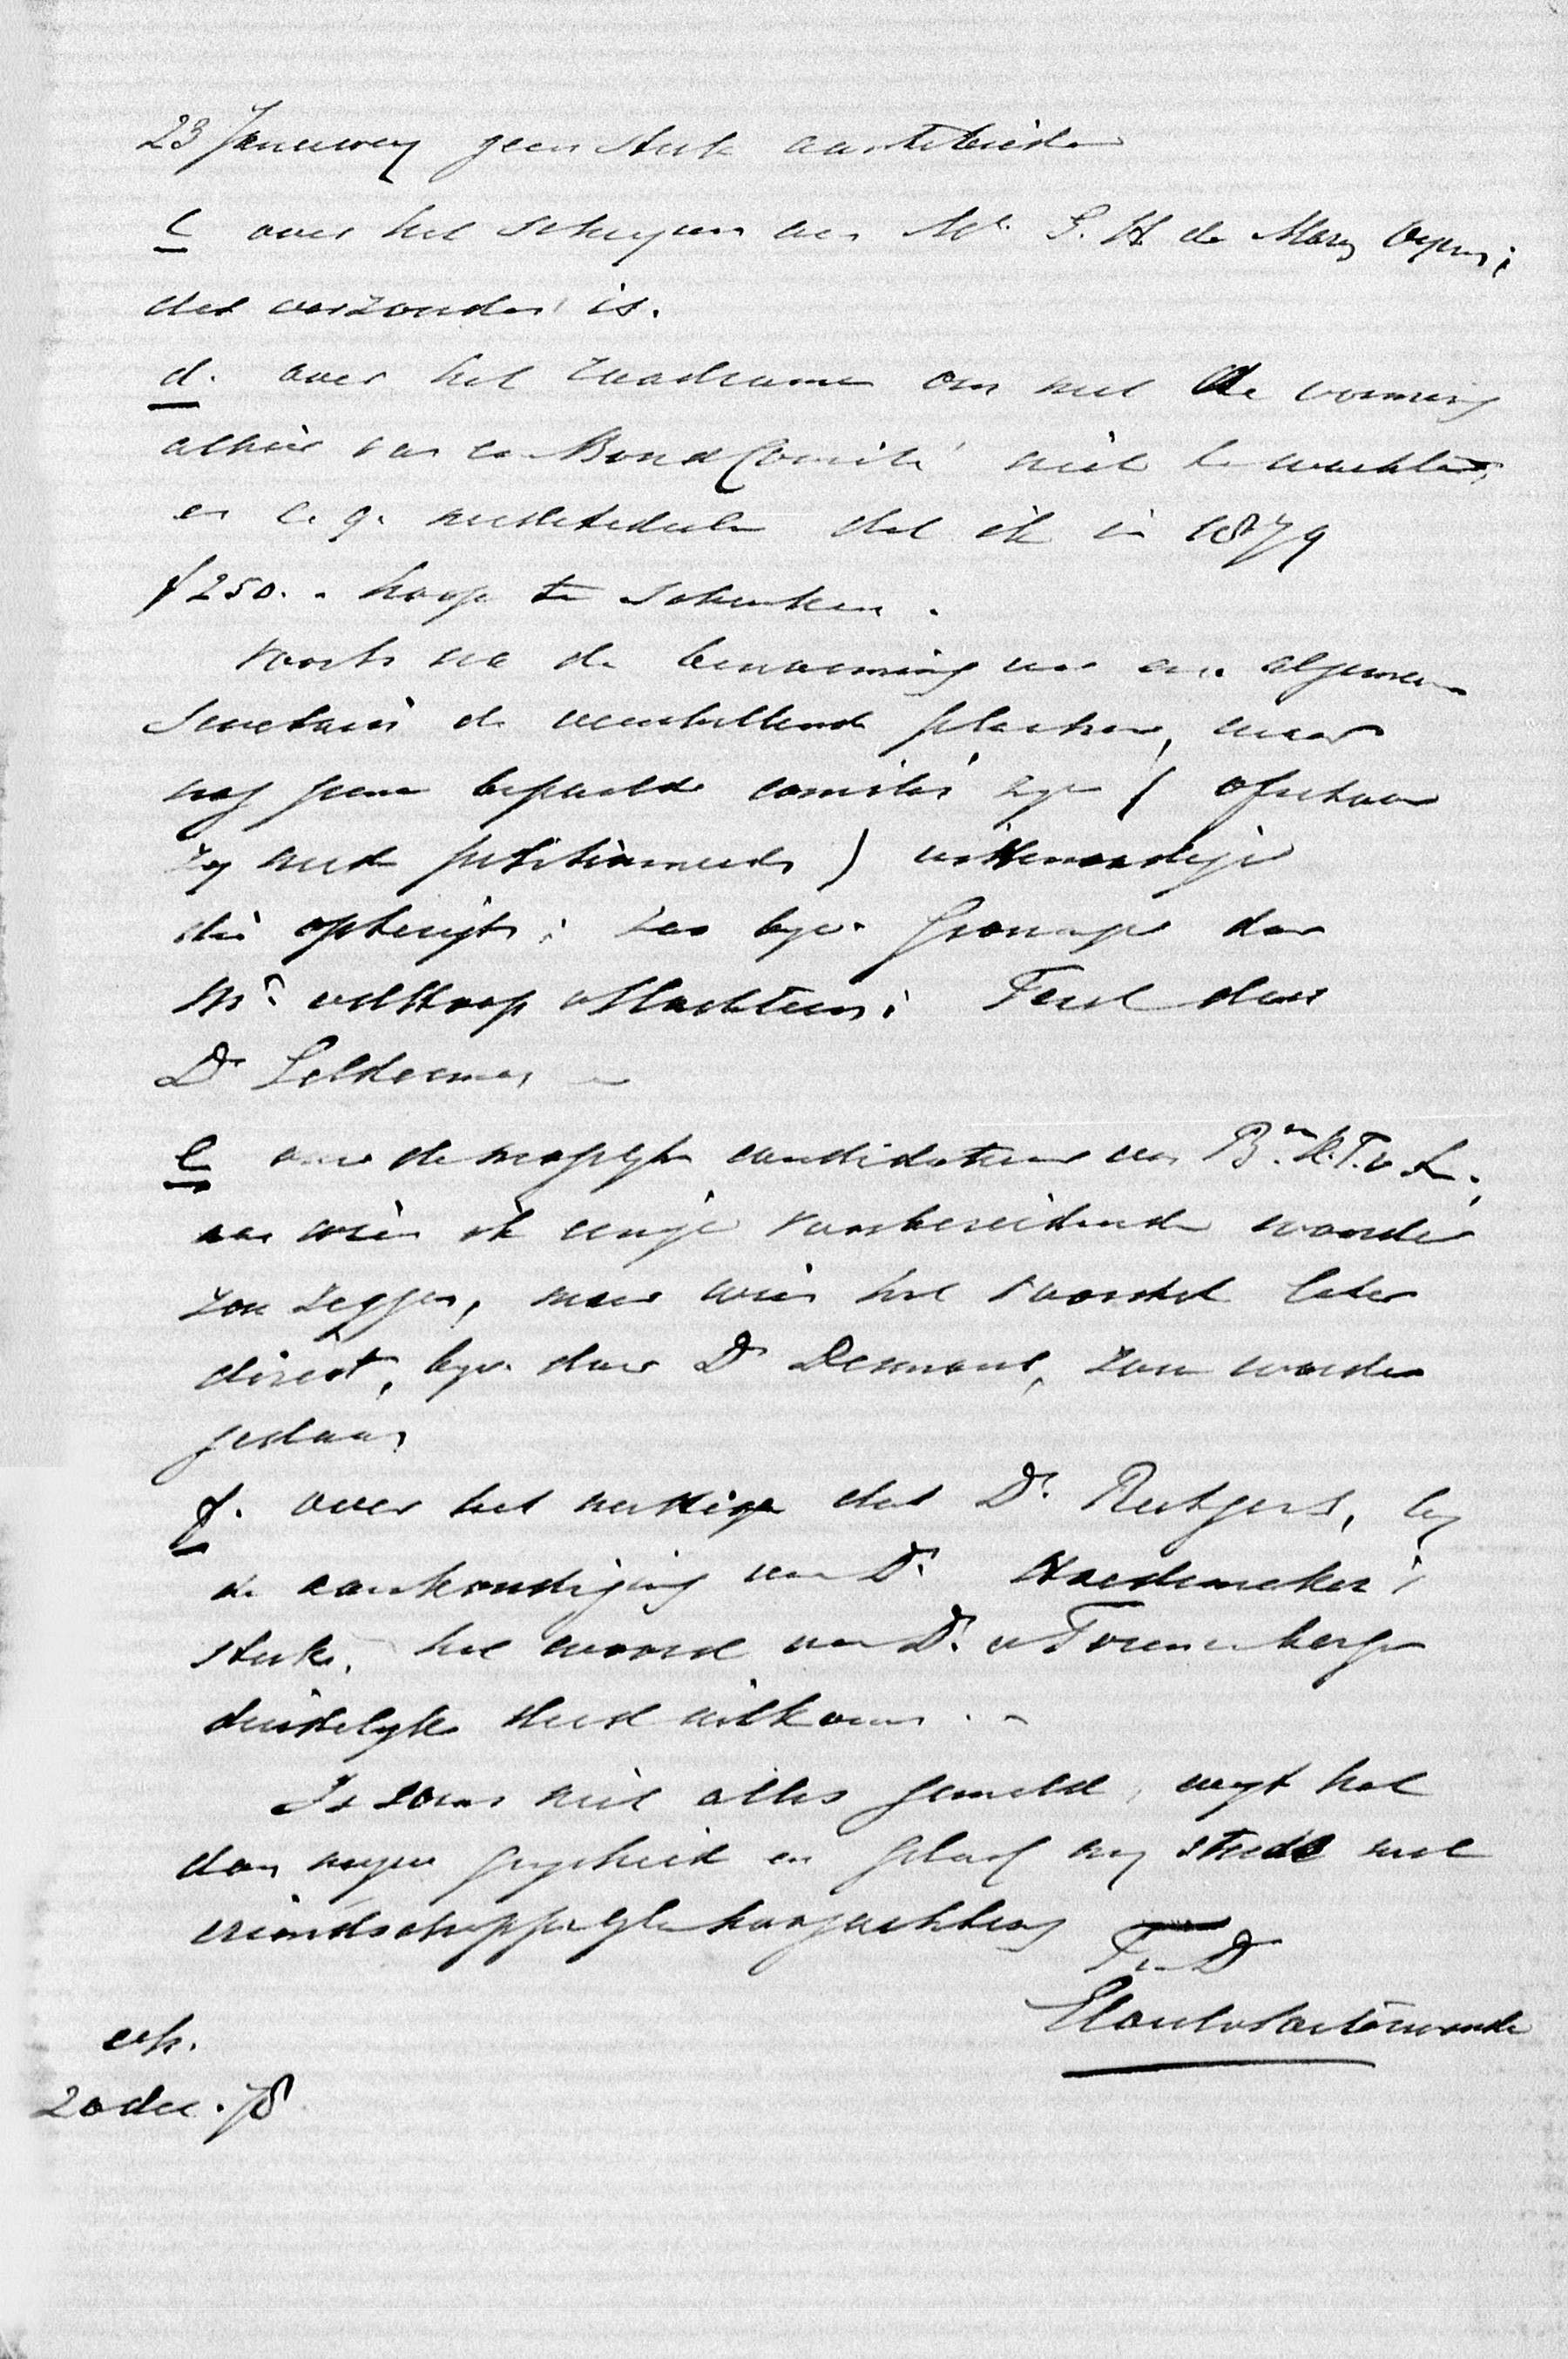 23 January geen stuk aantebieden
c over het schrijven van Mr. S. H de Marez Oyens;
dat verzonden is.
d. over het raadzame om met de vorming
alhier van een Bond Comité niet te wachten,
en c. q. medetedeelen dat ik in 1879
f 250.- hoop te schenken.
Voorts na de benoeming van een algemeen
Secretaris de verschillende plaatsen, waar
nog geene bepaalde comités zijn (ofschoon
zij mede petitioneerden) uittenoodigen
die opterigten; zoo bijv. Groningen door
Mr. Thiel door
Dr
e over de mogelijke candidatuur van Bn. K. T. v L.;
aan wien ik eenige voorbereidende woorden
zou zeggen, maar wien het voorstel later
direct, bijv. door Dr zou worden
gedaan
f. over het nuttige dat Dr. Rutgers, bij
de aankondiging van Dr. Hoedemaker's
stuk, het woord van Dr. v Toorenenbergen
duidelijk deed uitkomen. -
Is soms niet alles gemeld, wijt het
dan mijne grysheid en geloof mij steeds met
vriendschappelijke hoogachting
T. D
Elout v Soeterwoude
20 dec. 78